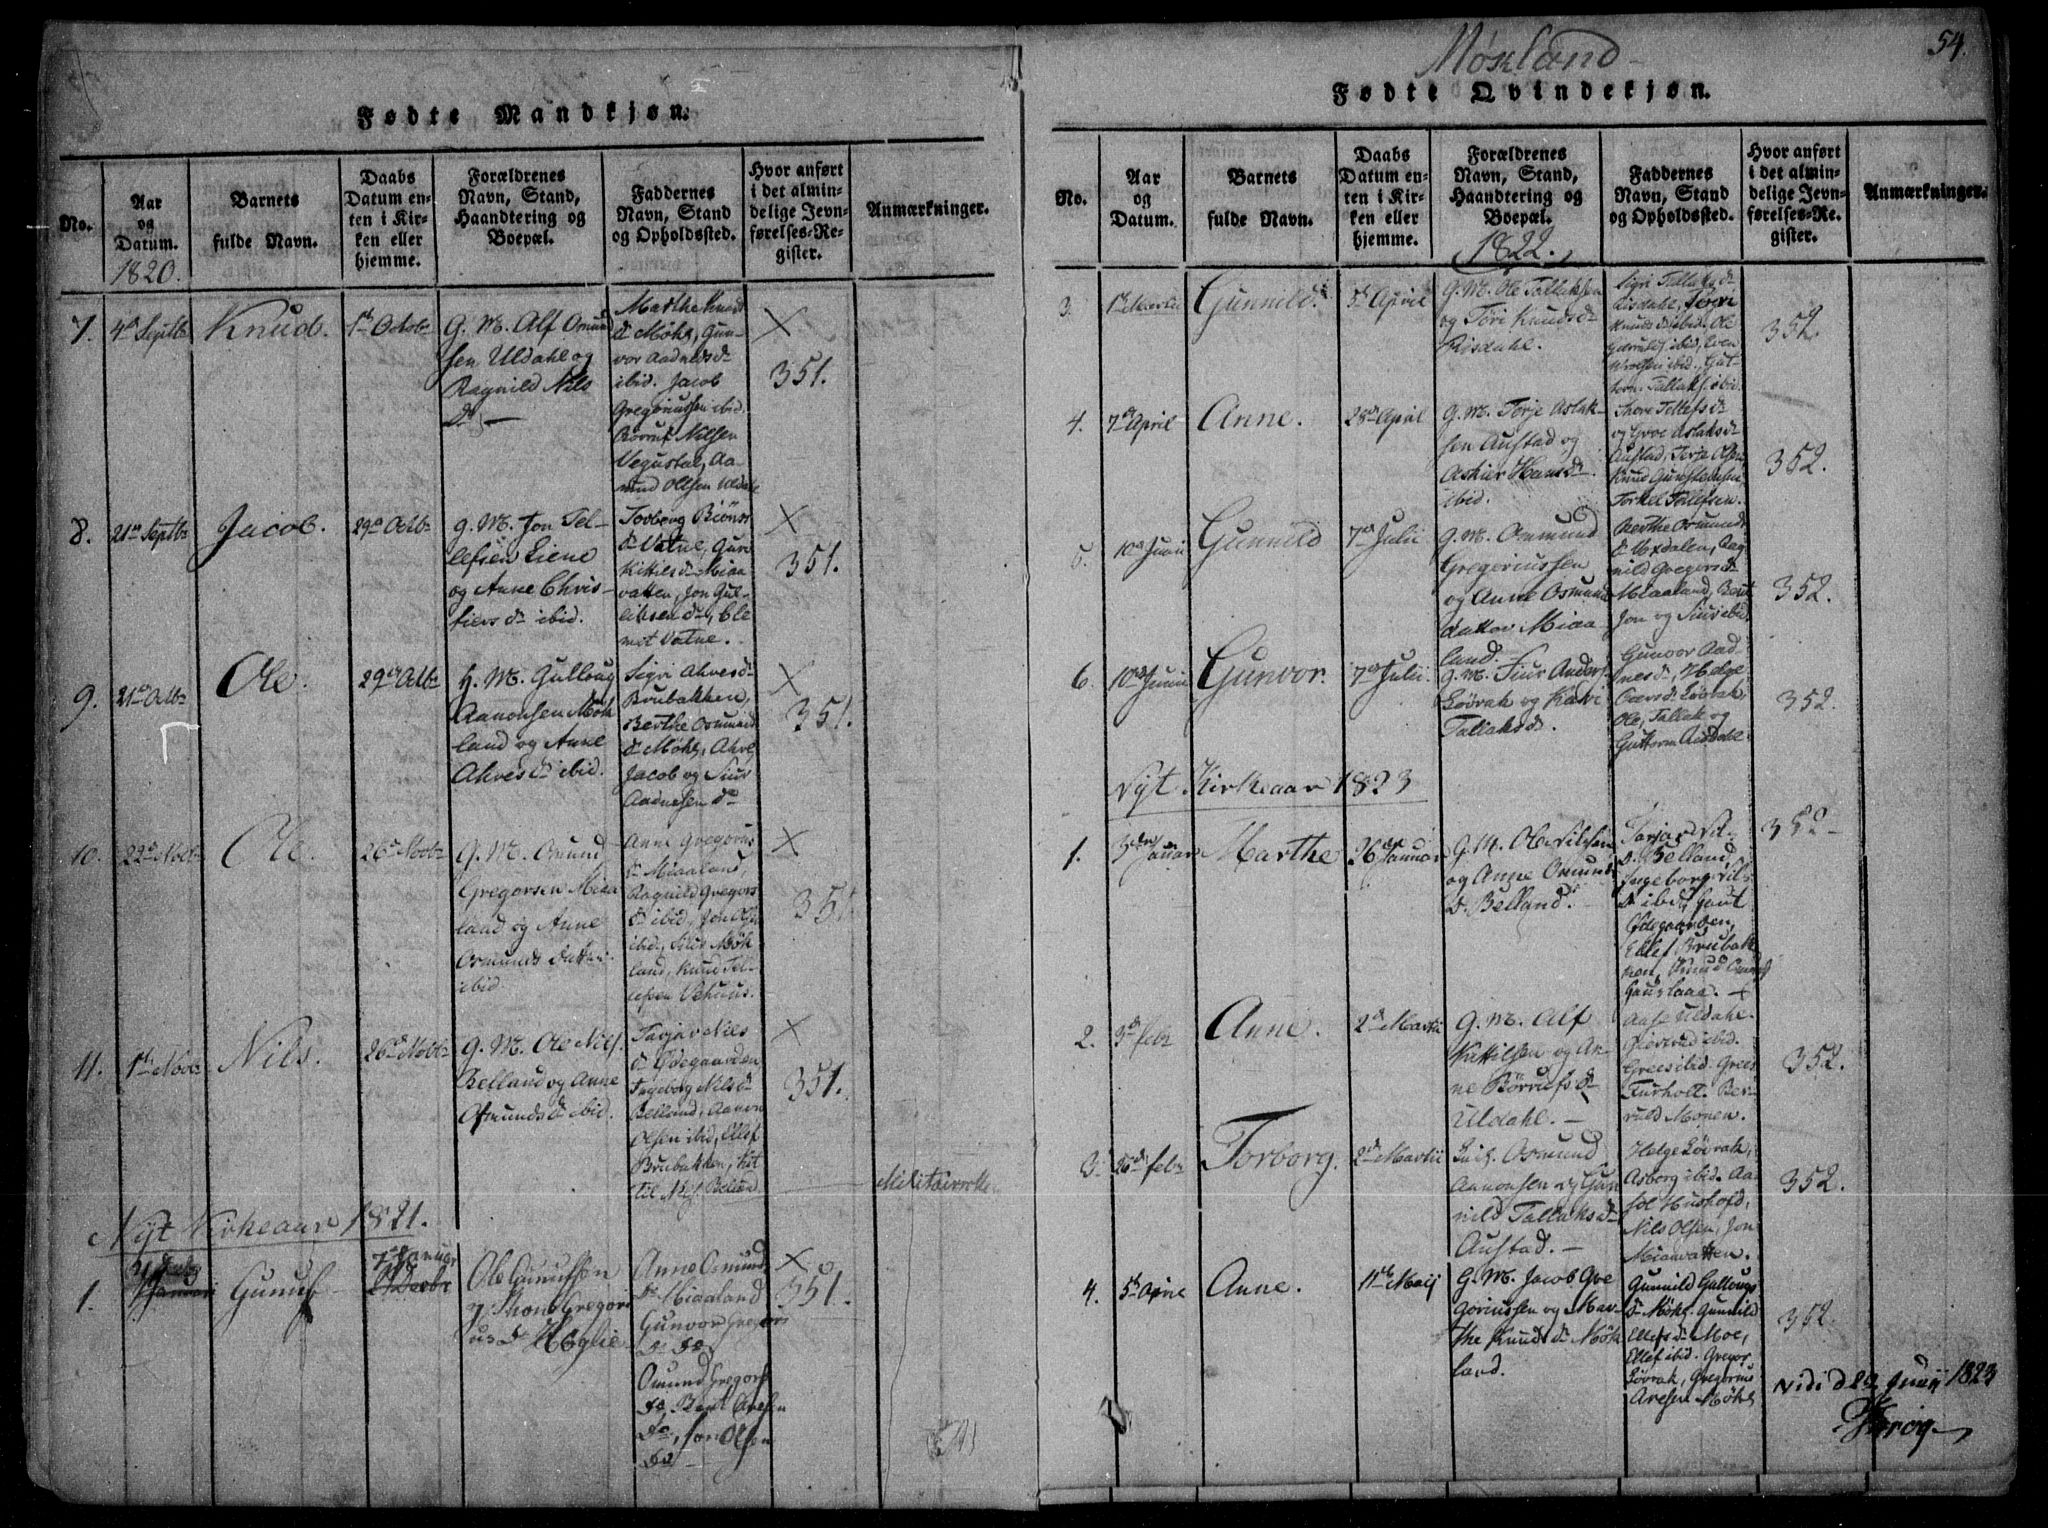 Fødte Mandkjøn.
No.
Aar
og
Datum.
1820.
Barnets
fulde Navn.
Daabs
Datum en-
ten i Kir-
ken eller
hjemme.
Forældrenes
Navn, Stand,
Haandtering og
Boepæl.
Faddernes
Navn, Stand
og Opholdssted.
Hvor anført
i det almin-
delige Jevn-
førelses-Re-
gister.
Anmærkninger.
7. 4de Septbr
Knud.
1ste Octob
G. M. Alf Osmund
sen Uldahl og
Ragnild Nils
dr —
Marthe Knuds
dr Møkl, Gun-
vor Aadnesdr
ibid. Jacob
Gregoriussen ibid
Børruf Nilsen
Vegustal, Aa-
mund Olsen Uldal
X
351.
8. 21de Septbr
Jacob.
29de Octbr
G. M. Jon Tel-
lefsen Liene
og Anne Chris-
tiers dr ibid.
Torberg Biørns
dr Vatne, Guri
Kittilsdr Miaa
vatten, Jon Gul-
leiksen do, Cle
met Vatne.
X
351.
9. 21de Octbr
Ole.
29de Octbr
H. M. Gulloug
Aanonsen Møk
land og Anne
Ahves dr ibid.
Sigri Ahvesdr
Brubakken,
Berthe Osmunds
dr Møkl, Ahve
Jacob og Siur
Aadnesen do
X
351.
10. 22de Novbr
Ole.
26de Novbr
G. M. Osmund
Gregorsen Miaa
land og Anne
Osmunds datter
ibid
Anne Gregorius
dr Miaaland,
Ragnild Gregors
dr ibid, Jon Olsen
ibid, Siur Møk
land, Knud Tel-
lefsen Vehuus.
X
351.
11. 1ste Novbr
Nils.
26de Novbr
G. M. Ole Nils.
Belland og Anne
Osmunds dr ibid.
Tarjer Nils
dr Ødegaarden
Ingeborg Nilsdr
Belland, Aanon
Olsen ibid, Ellef
Brubakken, Kit
til Nils. Belland
X
351.
Militairrolle
Nyt Kirkeaar 1821.
1.
Januar
Gunuf
7de Januar
Ole Gunufsen
Gregori
us dr Hoglie
Anne Osmunds
dr Miaaland
Gunvor Gregors
dr do
Osmund Gregors
do, Bent Aresen
do, Jon Olsen
do
X
351.
Møkland
54.
Fødte Qvindekjøn.
No.
Aar
og
Datum.
Barnets
fulde Navn.
Daabs
Datum en-
ten i Kir-
ken eller
hjemme.
Forældrenes
Navn, Stand,
Haandtering og
Boepæl.
1822.
Faddernes
Navn, Stand
og Opholdssted.
Hvor anført
i det almin-
delige Jevn-
førelses-Re-
gister.
Anmærkninger.
3. 1ste Martii
Gunnild
5te April
G. M. Ole Tallaksen
og Tøri Knudsdr
Risdahl.
Sigri Tallaksdr
Risdahl, Tøri
Knudsdr ibid. Ole
ibid, Even
ibid, Gut-
torm Tallaks. ibid.
352
4. 7de April
Anne.
28de April
G. M. Terje Aslak-
sen Austad og
Askier Hansdr
ibid.
Thore Tellefsdr
og Groe Aslaksdr
Austad, Terje Olsen
Knud Gunstensen
Torkel Tellefsen.
352.
5. 10de Junii
Gunnild
7de Julii
G. M. Osmund
Gregoriussen
og Anne Osmunds
datter Miaa-
land.
Berthe Osmunds
dr Uxdalen, Rag
nild Gregorsdr
Miaaland, Bent
Jon og Siur ibid
352.
6. 10de Junii
Gunvor.
7de Julii
G. M. Siur Anders.
Løvrak og Kari
Tallaksdr.
Gunvor Aad-
nesdr, Helge
Løvrak,
Ole, Tallak og
Guttorm Risdahl
352.
Nyt Kirkeaar 1823
1. 3den Januar
Marthe
26de Januar
G. M. Ole Nilsen
og Anne Osmunds
dr Belland.
Tarjer Nils
dr Belland,
Ingeborg Nils
dr ibid, Gaut
Ødegaarden,
Ellef Brubak
ken, Osmund
Gauslaae.
352
2. 3de febr
Anne.
2den Martii
G. M. Alf
Kittilsen og An-
ne Børrufsdr
Uldahl. —
Aase Uldahl.
ibid.
Grees ibid. Grees
Furholt. Ber-
ruld Monen.
352.
3. 26de febr
Torborg.
2den Martii
Osmund
Aanonsen og Gun
nild Tallaksdr
Austad. —
Helge Løvrak,
Asborg ibid. Aa-
sel Hushofd,
Nils Olsen, Jon
Miaavatten.
352.
4. 5te April
Anne.
11te Maij
G. M. Jacob Gre
goriussen og Mar-
the Knudsdr Møk
land.
Gunnild Gullougs
dr Møkl. Gunnild
Ellefsdr Moe,
Ellef ibid. Gregor
Løvrak, Gregorius
Aresen Møkl
352.
Vidi d 22 Junij 1823
Krog